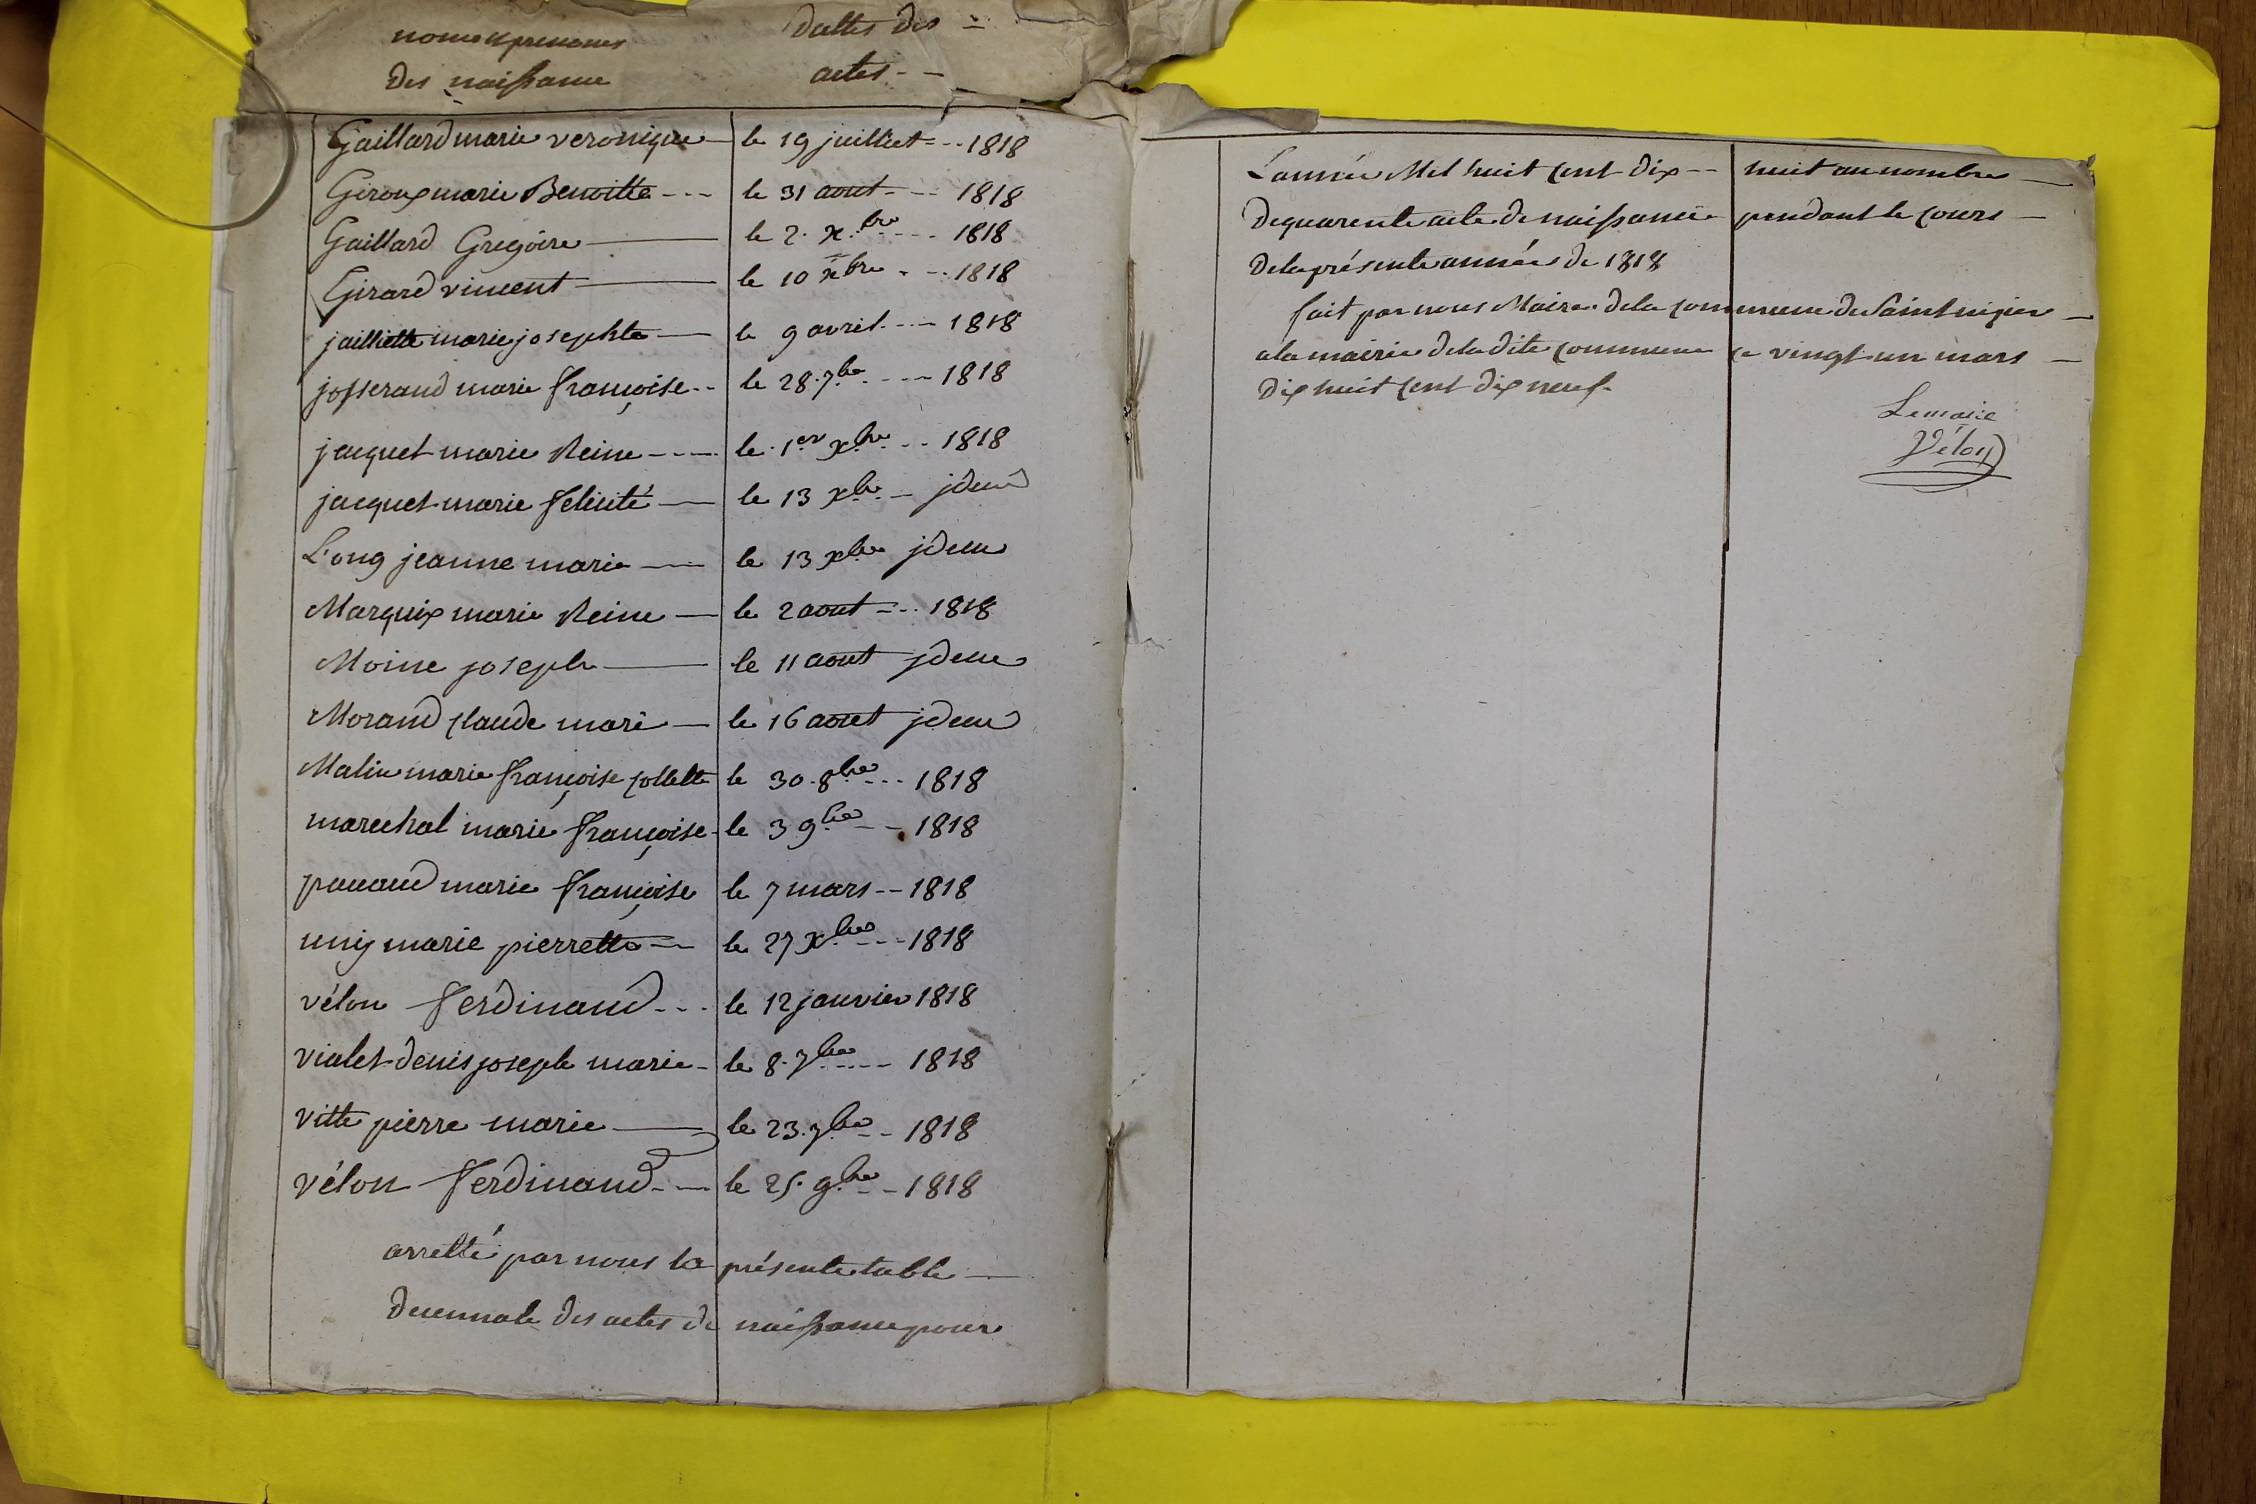 noms et prenoms dattes des
des naissance actes
Gaillard marie veronique le 19 juilliet 1818
Giroux marie Benoitte le 31 aout 1818
Gaillard Gregoire le 2 xbre 1818
Girard vincent le 10 xbre 1818
jailliette marie josephte le 9 avril 1818
josserand marie françoise le 28 7bre 1818
jacquet marie Reine le 1er xbre 1818
jacquet marie felicité le 13 xbre jdem
Long jeanne marie le 13 xbre jdem
Marquix marie Reine le 2 aout 1818
Moine joseph le 11 aout jdem
Morand claude marie le 16 aout jdem
marie françoise collette le 30 8bre 1818
marechal marie françoise le 3 9bre 1818
marie françoise le 7 mars 1818
marie pierrette le 27 xbre 1818
vélon ferdinand le 12 janvier 1818
violet denis joseph marie le 8 7bre 1818
vitte pierre marie le 23 7bre 1818
vélon ferdinand le 25 9bre 1818
arretté par nous la présente table
decennale des actes de naissance pour
L'année Mil huit cent dix huit au nombre
de quarente acte de naissance pendant le cours
de la présente année de 1818
fait par nous Maire de la commune de Saint nizier
a la mairie de la dite commune ce vingt un mars
dix huit cent dix neuf
Lemaire
Vélon